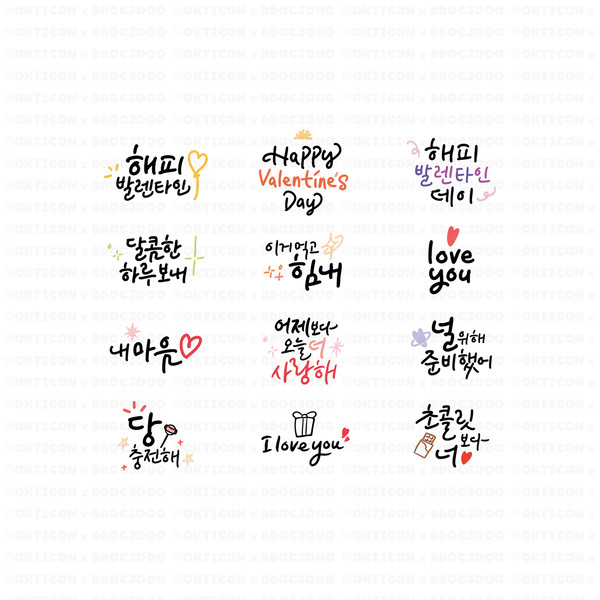 해피
발렌타인
Happy
Valentine's
Day
해피
발렌타인
데이
달콤한
하루보내
이거먹고
힘내
love
you
내마음
어제보다
오늘 더
사랑해
널위해
준비했어
당
충전해
I love you
초콜릿
보다
너